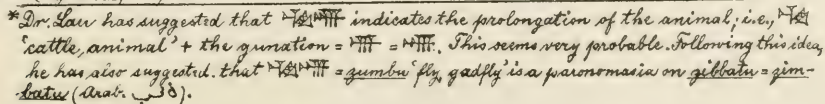 *Dr. Lau has suggested that indicates the prolongation of the animal; i.e.,
'cattle, animal' + the gunation = = . This seems very probable. Following this idea,
he has also suggested that = zumbu 'fly, gadfly' is a paronomasia on zibbatu = zim-
batu (Arab. ذنب).